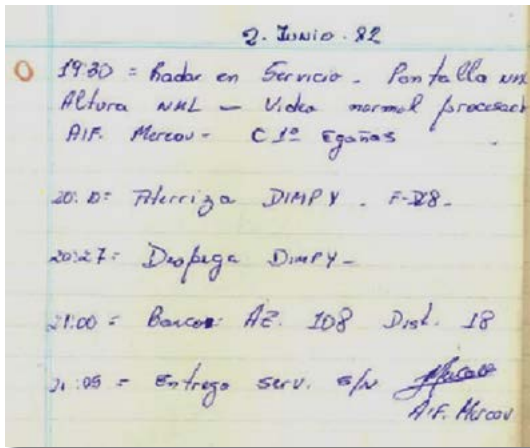 2. Junio. 82
19:30 = Radar en Servicio - Pantalla
Altura NML - Video normal
AIF. Mercau - C 1º Egañas
Aterriza DIMPY.
20:27 = Despega DIMPY -
21:00 = Barcos AZ. 108 Dist. 18
21:05 = Entrego serv. s/N
AIF. Mercau